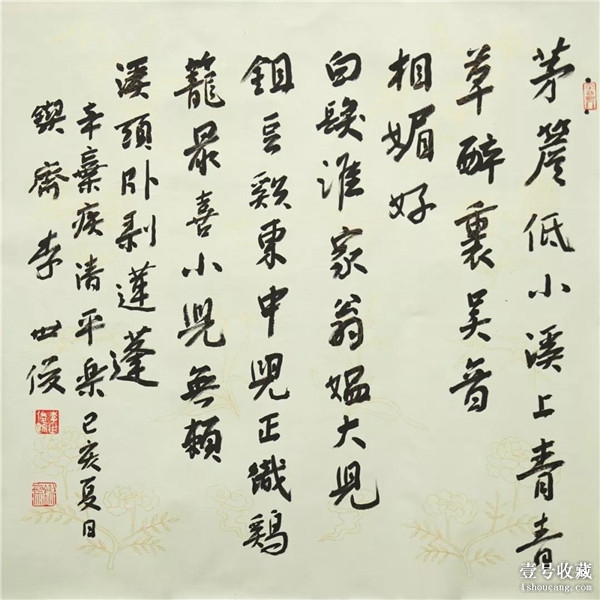 茅簷低小溪上青青
草醉裏吴音
相媚好
白髮谁家翁媪大兒
鉏豆谿東中兒正織鷄
籠最喜小兒無賴
溪頭卧剥蓮蓬
辛棄疾清平樂己亥夏日
鍥齋李世俊
壹号收藏
1shoucang.com